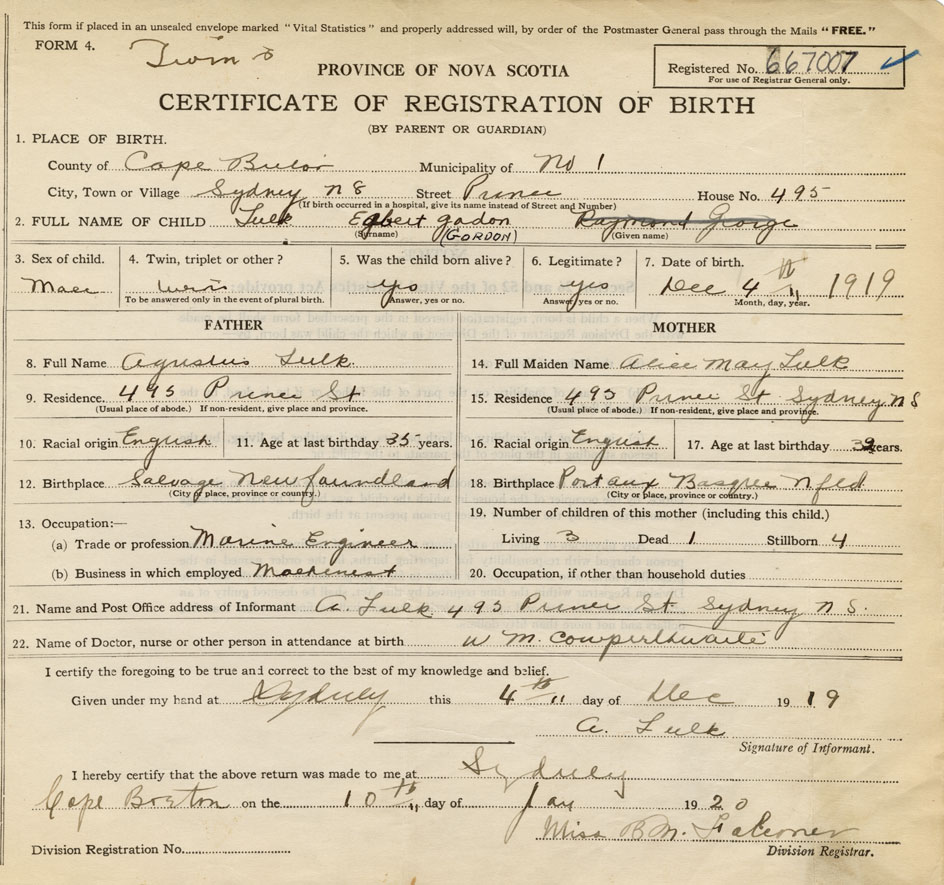 This form if placed in an unsealed envelope marked "Vital Statistics" and properly addressed will, by order of the Postmaster General pass through the Mails "FREE."
FORM 4. Twin
PROVINCE OF NOVA SCOTIA
Registered No. 667007 ✓
For use of Registrar General only.
CERTIFICATE OF REGISTRATION OF BIRTH
(BY PARENT OR GUARDIAN)
1. PLACE OF BIRTH.
County of Cape Municipality of No 1
City, Town or Village Sydney N S Street Prince House No. 495
(If birth occurred in a hospital, give its name instead of Street and Number)
2. FULL NAME OF CHILD Lulk Egbert Gadon Raymond George
(Surname) (GORDON) (Given name)
3. Sex of child. 4. Twin, triplet or other? 5. Was the child born alive? 6. Legitimate? 7. Date of birth.
Male Twin yes yes Dec 4th 1919
To be answered only in the event of plural birth. Answer, yes or no. Answer, yes or no. Month, day, year.
FATHER
8. Full Name Agustus Lulk.
9. Residence. 495 Prince St
(Usual place of abode.) If non-resident, give place and province.
10. Racial origin English 11. Age at last birthday 35 years.
12. Birthplace Salvage Newfoundland
(City or place, province or country.)
13. Occupation:—
(a) Trade or profession Marine Engineer
(b) Business in which employed Machenest
MOTHER
14. Full Maiden Name Alice May Lulk
15. Residence 495 Prince St Sydney N S
(Usual place of abode.) If non-resident, give place and province.
16. Racial origin English 17. Age at last birthday years.
18. Birthplace Port aux Basque Nfld
(City or place, province or country.)
19. Number of children of this mother (including this child.)
Living 3 Dead 1 Stillborn 4
20. Occupation, if other than household duties
21. Name and Post Office address of Informant A. Lulk 495 Prince St Sydney N S.
22. Name of Doctor, nurse or other person in attendance at birth W M. Cowperthwaite
I certify the foregoing to be true and correct to the best of my knowledge and belief.
Given under my hand at Sydney this 4th day of Dec 1919
A. Lulk
Signature of Informant.
I hereby certify that the above return was made to me at Sydney
Cape Breton on the 10th day of Jan 1920
Miss B M. Falconer
Division Registration No. Division Registrar.